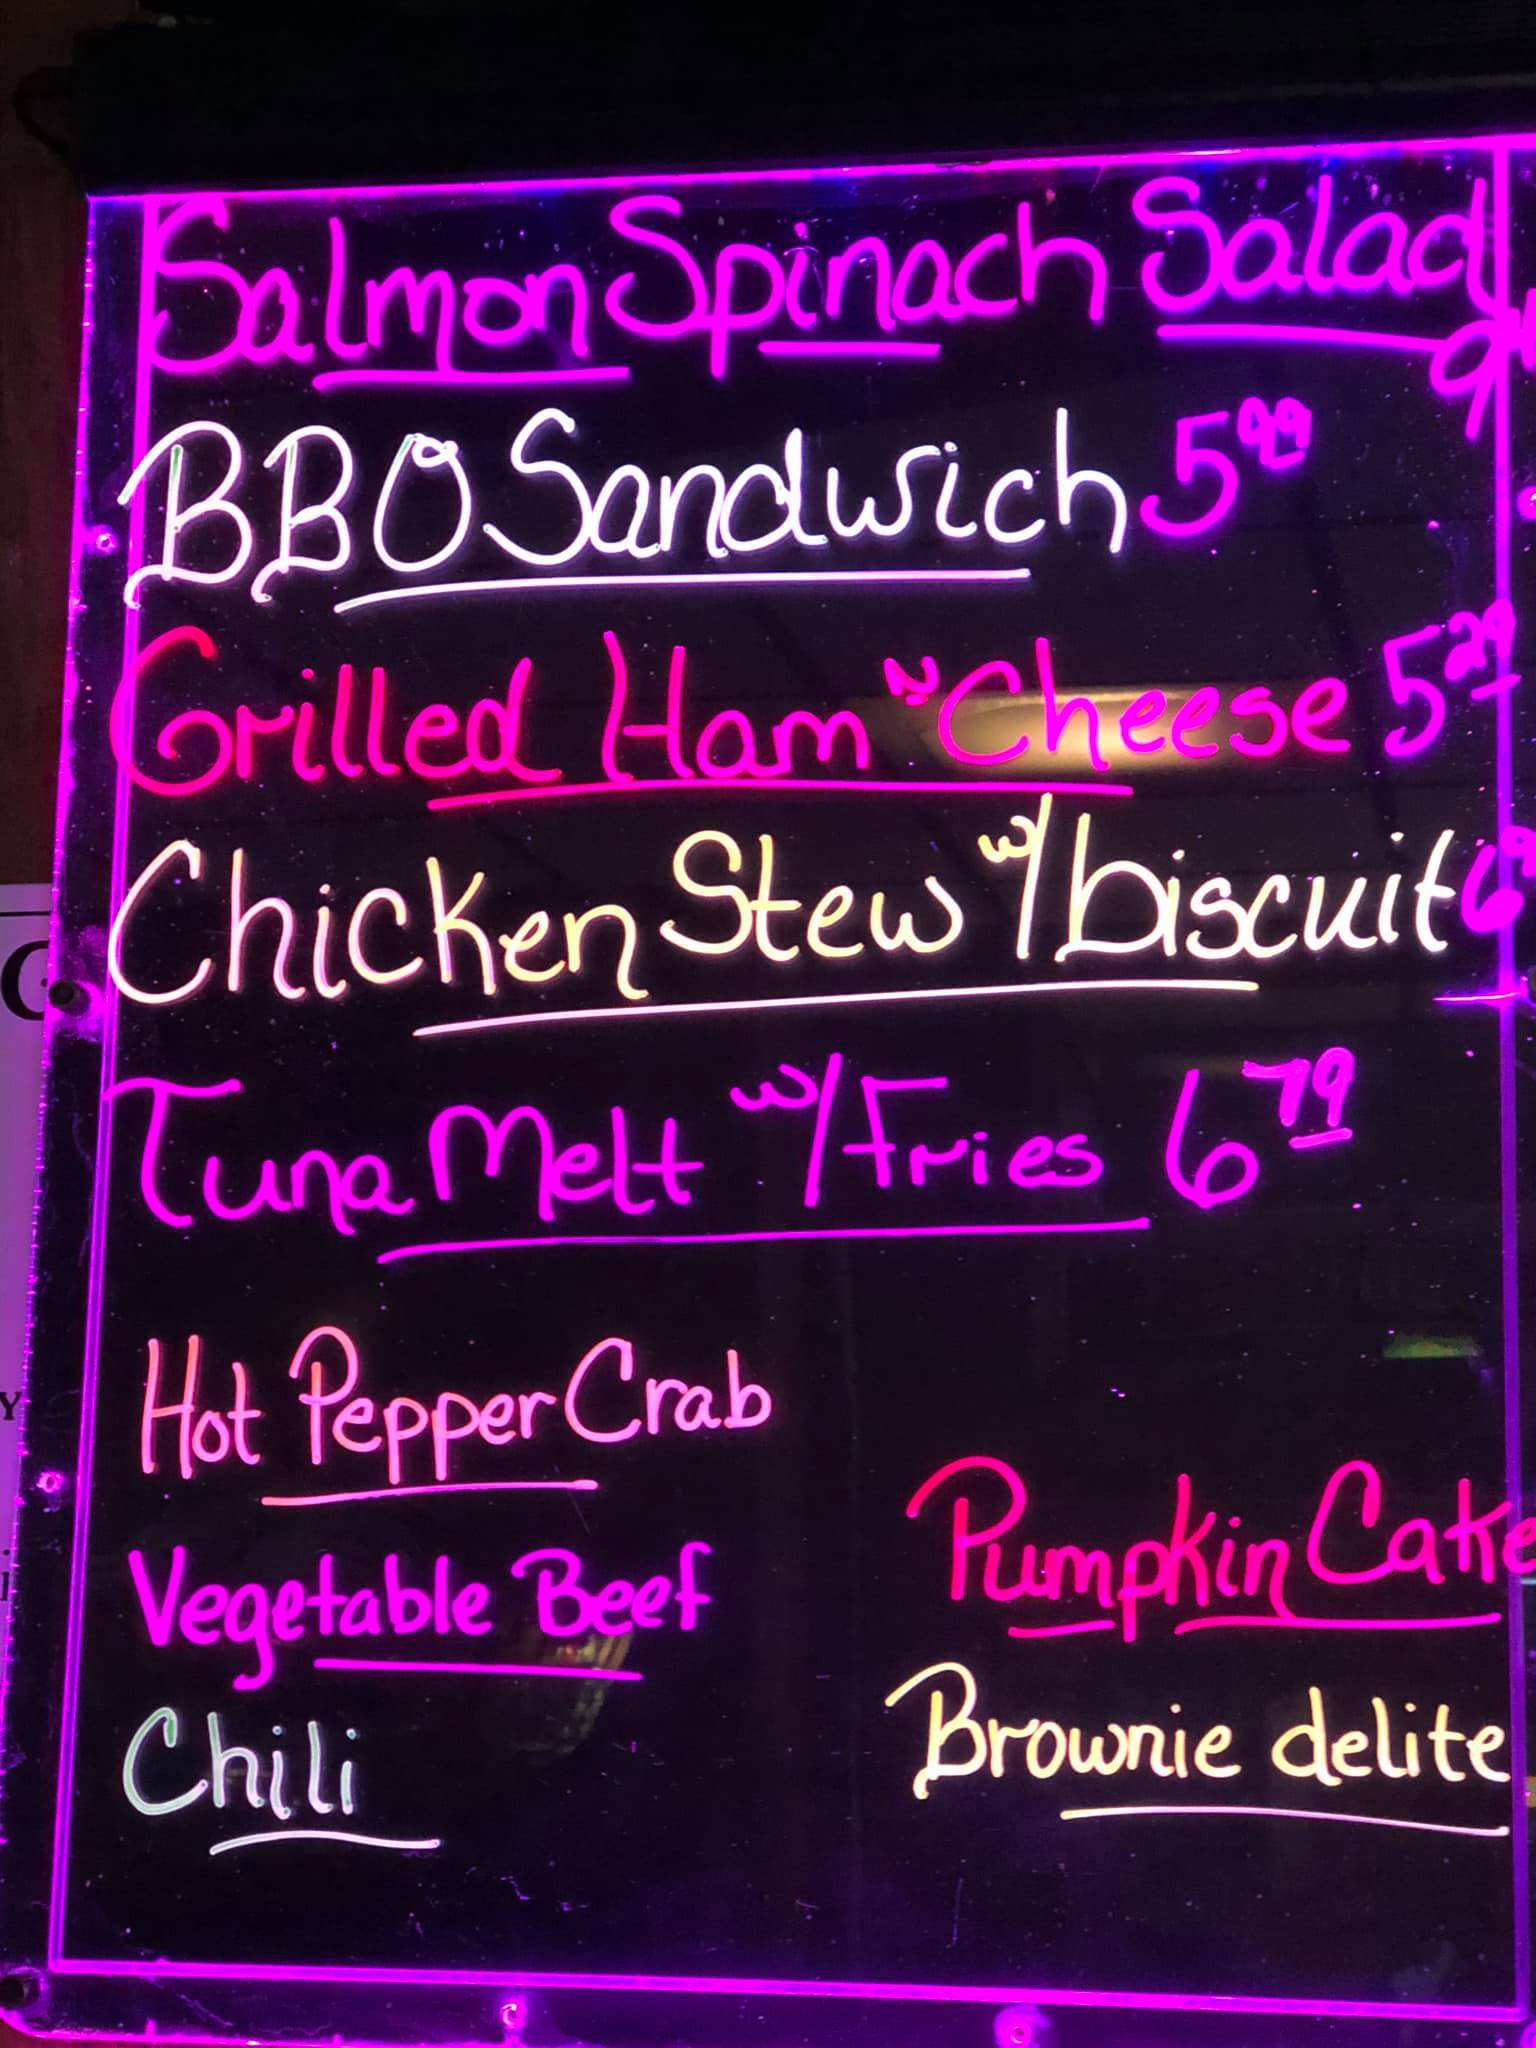 Salmon Spinach Salad
BBQ Sandwich 5.99
Grilled Ham N Cheese 5.29
Chicken Stew w/ biscuit
Tuna Melt w/ Fries 6.79
Hot Pepper Crab
Pumpkin Cake
Vegetable Beef
Brownie delite
Chili